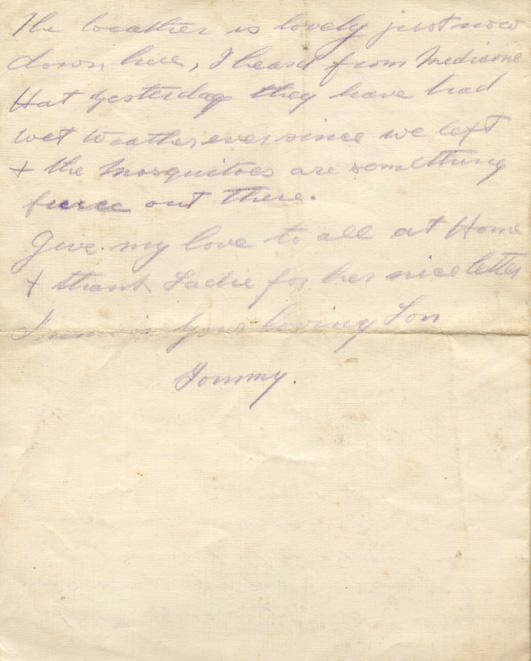 The weather is lovely just now
down here, I heard from Medicine
Hat yesterday they have had
wet weather ever since we left
+ the Mosquitoes are something
fierce out there.
Give my love to all at Home
+ thank Sadie for her nice letter
I remain your loving Son
Tommy.